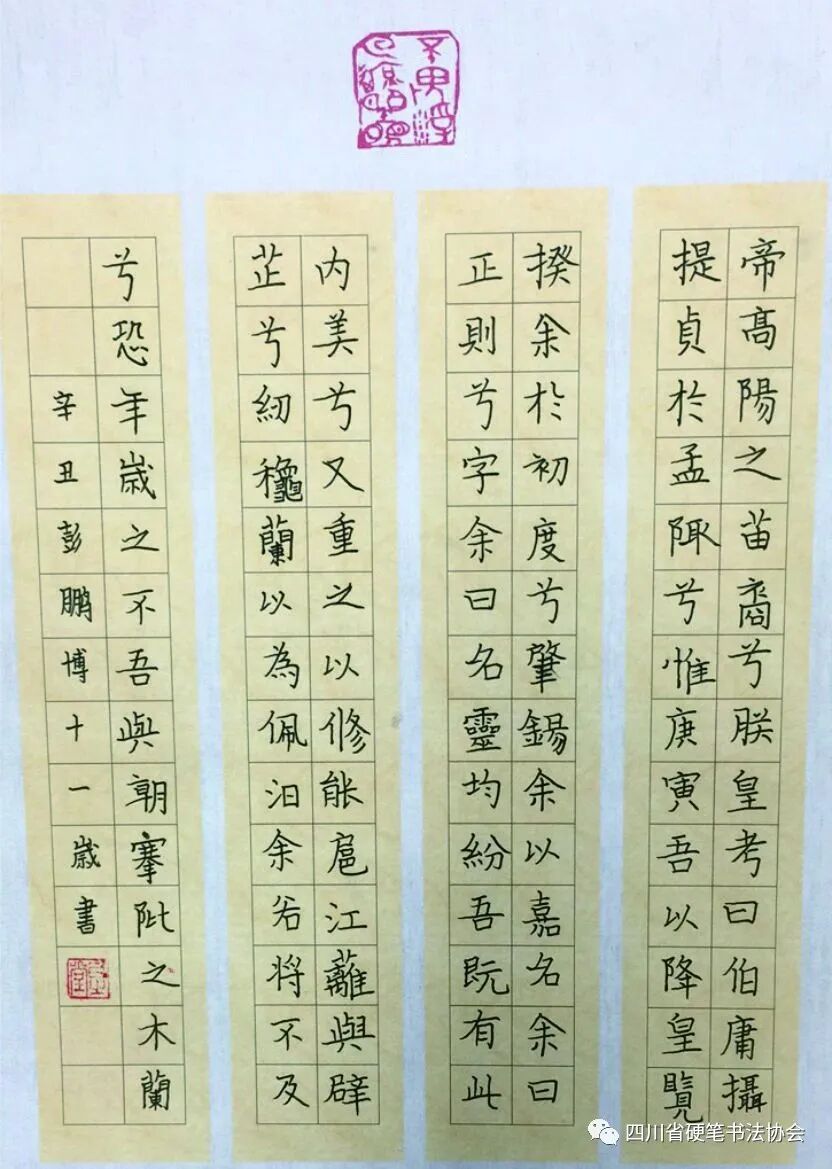 帝高陽之苗裔兮朕皇考曰伯庸攝
提貞於孟陬兮惟庚寅吾以降皇覽
揆余於初度兮肇錫余以嘉名余曰
正則兮字余曰名靈均紛吾既有此
内美兮又重之以修能扈江蘺與辟
芷兮紉穐蘭以為佩汩余若将不及
兮恐年歲之不吾與朝搴阰之木蘭
辛丑彭鵬博十一歲書
四川省硬笔书法协会